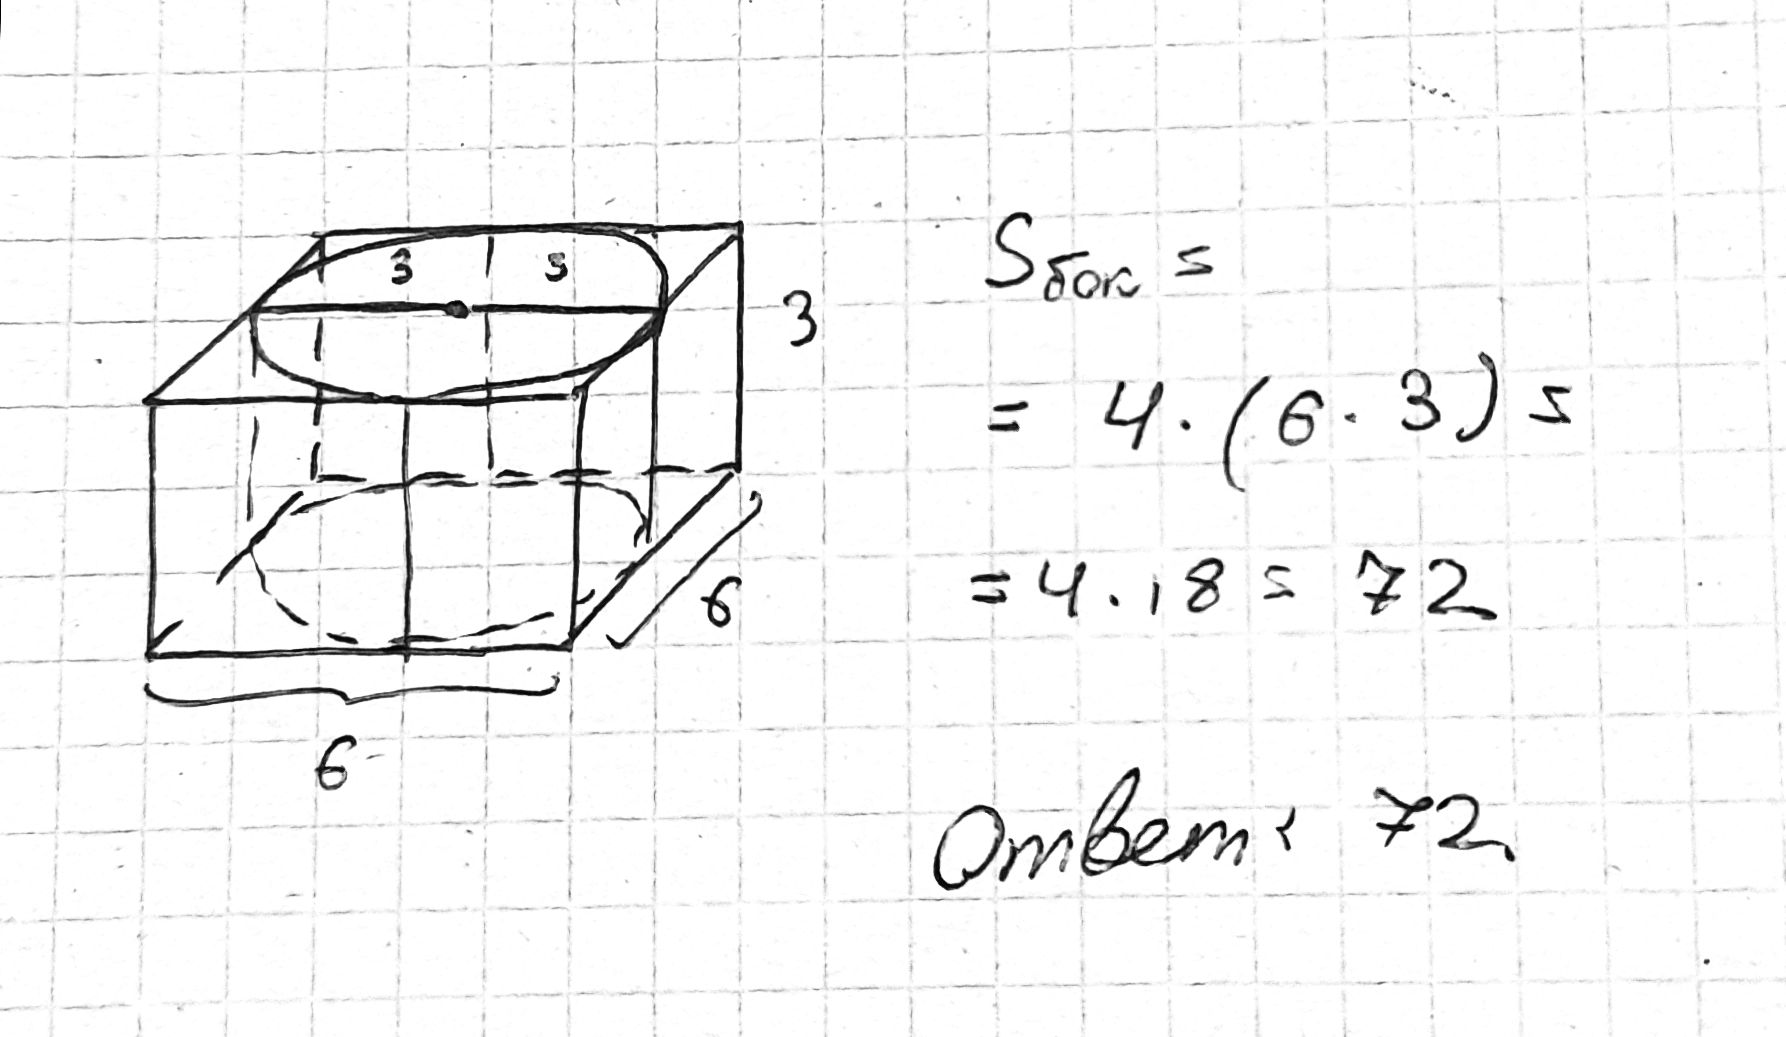 3 3
3
6
6
Sбок =
= 4 · (6 · 3) =
= 4 · 18 = 72
Ответ: 72